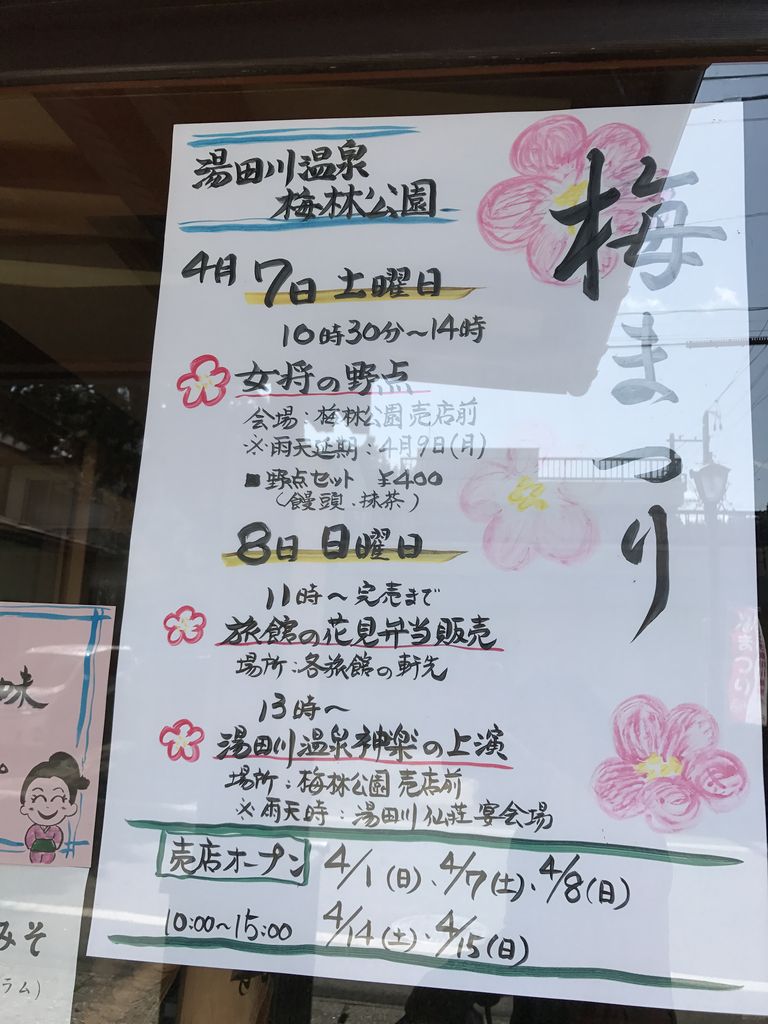 梅まつり
湯田川温泉
梅林公園
4月7日土曜日
10時30分～14時
女将の野点
会場：梅林公園売店前
※雨天延期：4月9日(月)
■野点セット ¥400
(饅頭、抹茶)
8日日曜日
11時～完売まで
旅館の花見弁当販売
場所：各旅館の軒先
13時～
湯田川温泉神楽の上演
場所：梅林公園売店前
※雨天時：湯田川仙荘宴会場
売店オープン 4/1(日)、4/7(土)、4/8(日)
10:00～15:00 4/14(土)、4/15(日)
味
みそ
ラム)